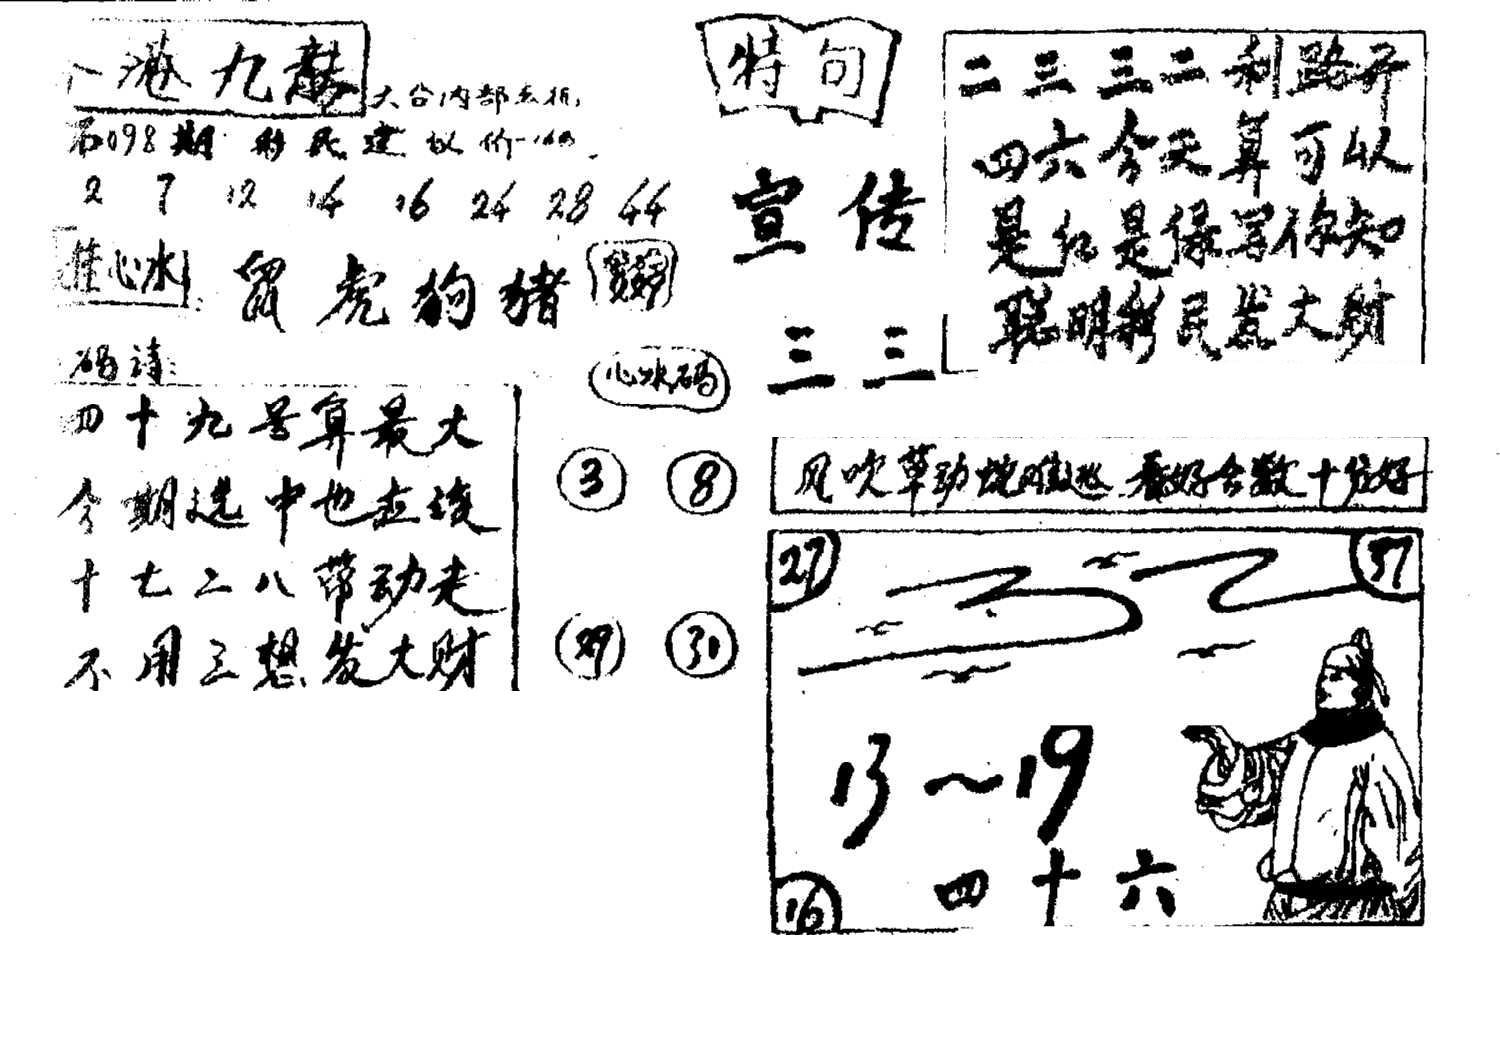 港九
大台内部
098期 彩民建议价
2 7 12 14 16 24 28 44
准心水 鼠虎狗猪
码诗:
四十九号算最大
今期选中也
十七二八带动走
不用三想发大财
心水码
3 8
29 31
特句
宣传
三三
二三三二利路开
四六今天算可以
是红是绿写你知
聪明彩民发大财
风吹草动 看好合数十分好
27 37
13~19
四十六
16